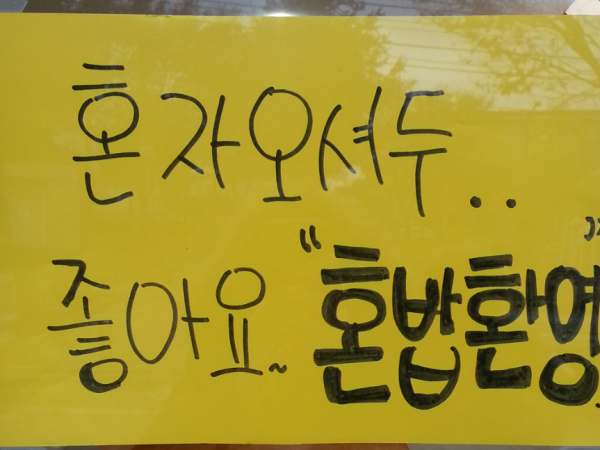 혼자오셔두..
좋아요~ "혼밥환영"